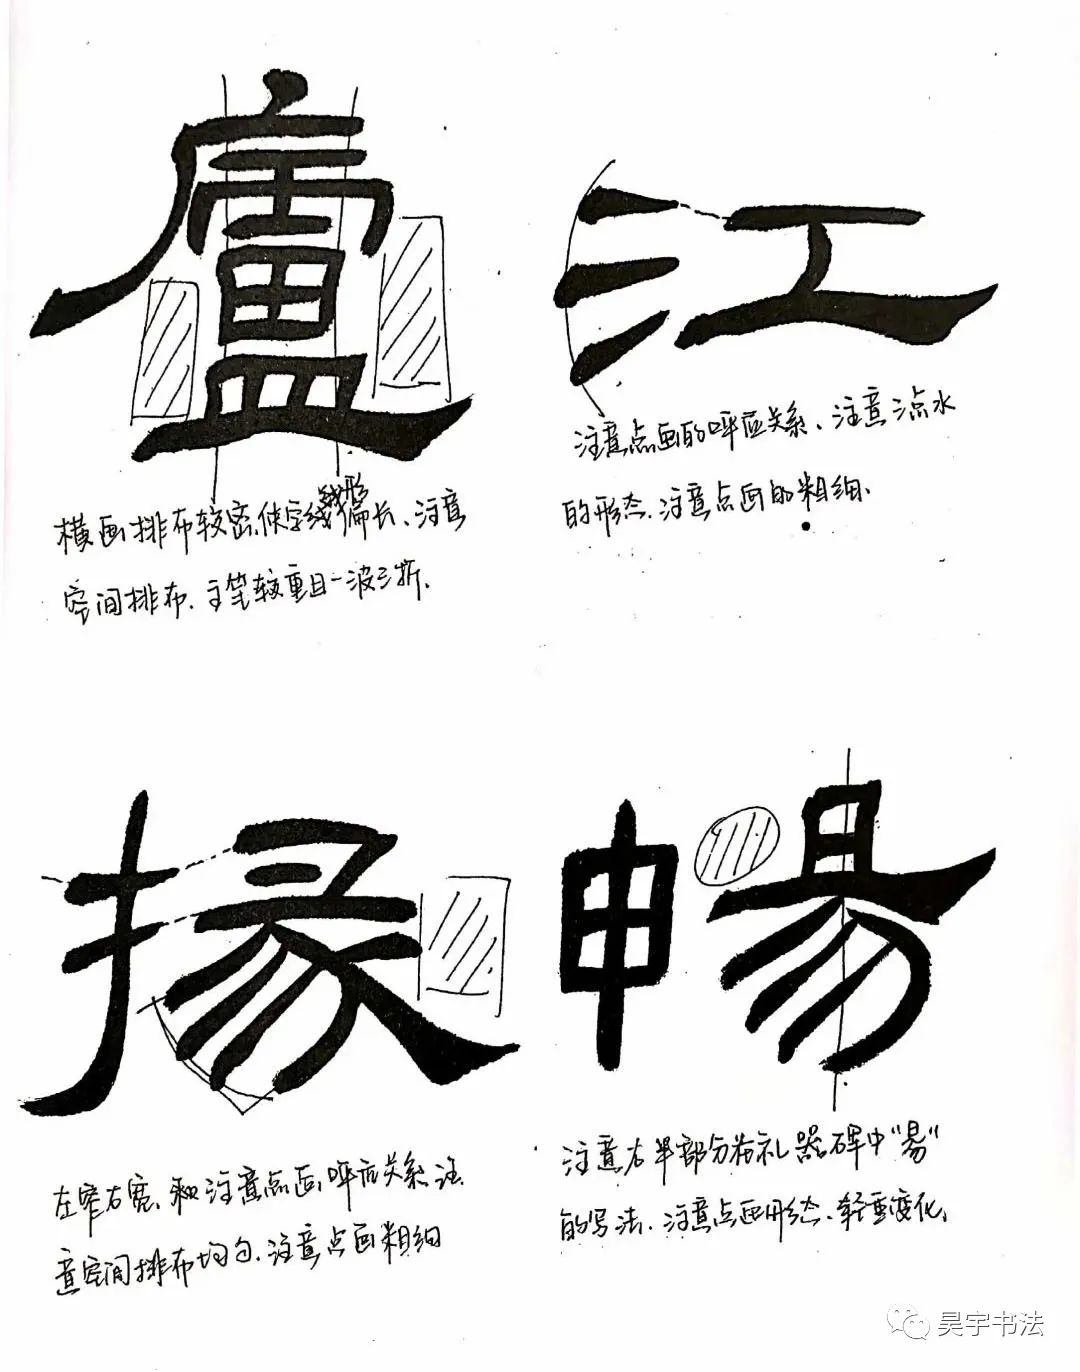 廬
江
横画排布较密,使字线形偏长、注意
空间排布.主笔较重且一波三折.
注意点画的呼应关系、注意三点水
的形态.注意点画的粗细.
掾
暢
左窄右宽、和注意点画,呼应关系.注
意空间排布均匀.注意点画粗细
注意右半部分在礼器碑中"易"
的写法.注意点画形态、轻重变化、
昊宇书法